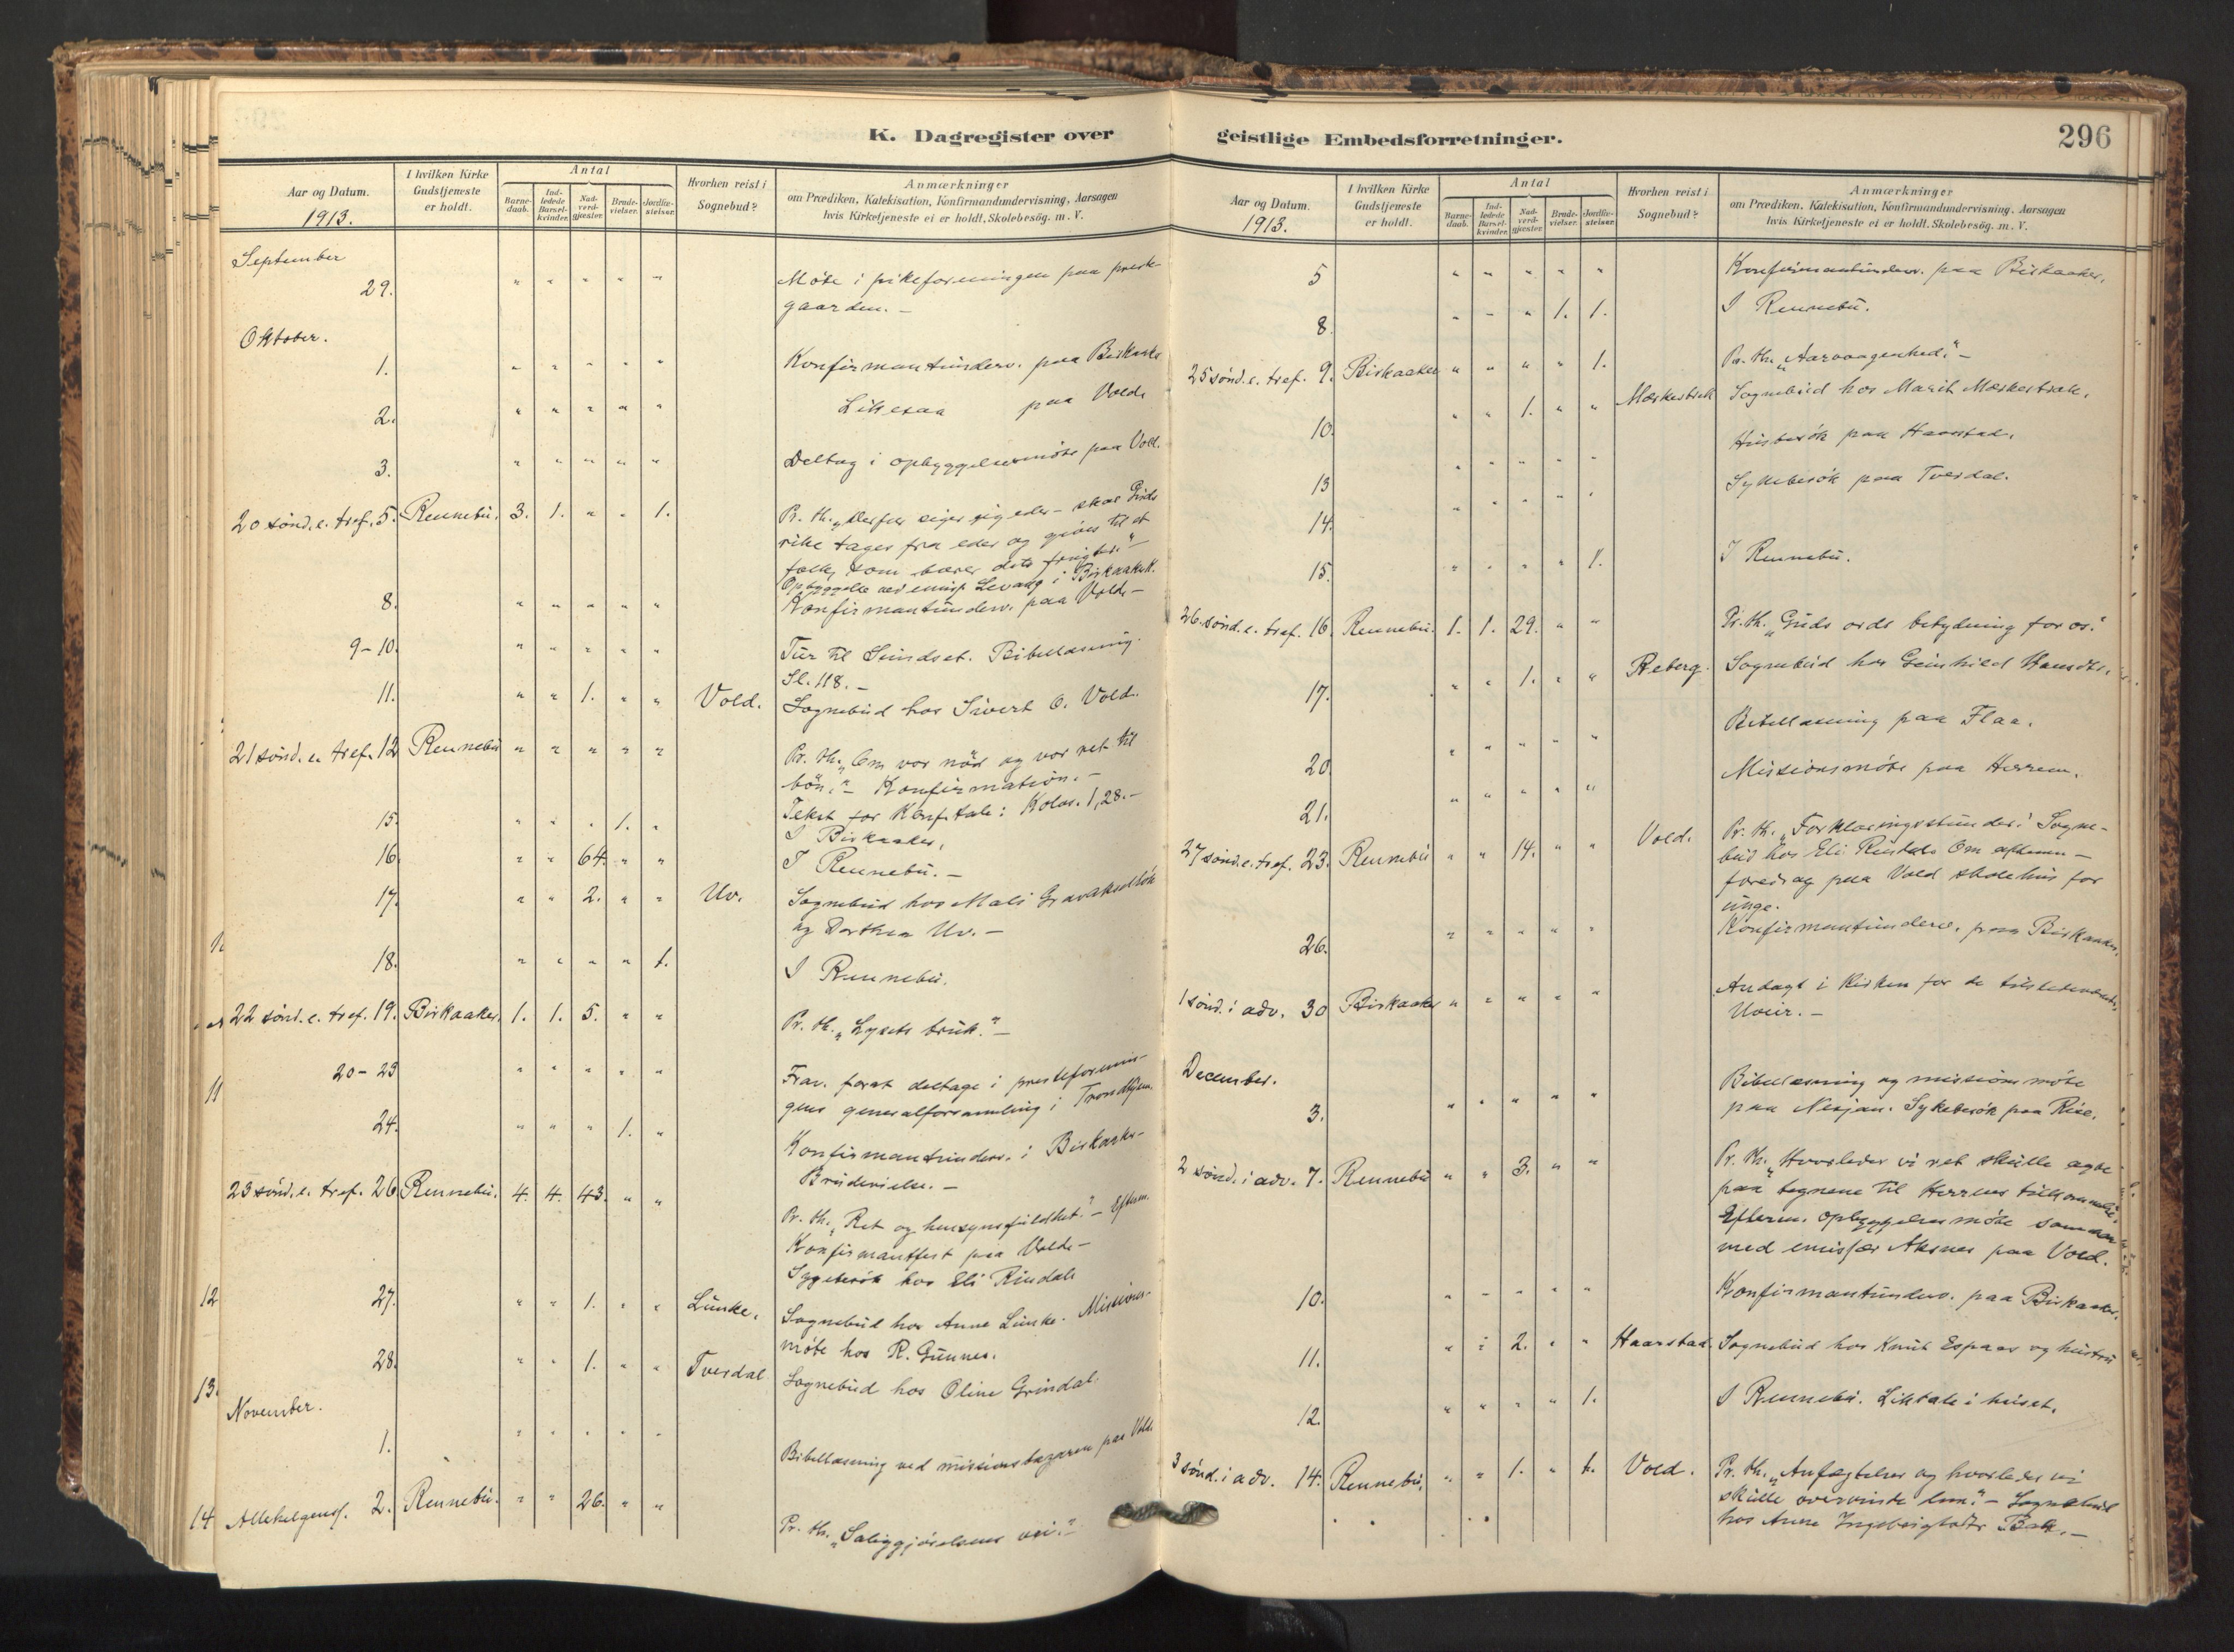 K. Dagregister over
Aar og Datum.
1913.
I hvilken Kirke
Gudstjeneste
er holdt.
Antal
Barne-
daab.
Ind-
ledede
Barsel-
kvinder.
Nad-
verd-
gjester.
Brude-
vielser.
Jordfæ-
stelser.
Hvorhen reist i
Sognebud?
Anmærkninger
om Prædiken, Katekisation, Konfirmandundervisning, Aarsagen
hvis Kirketjeneste ei er holdt, Skolebesøg. m. V.
September
29. " " " " " Møte i pikeforeningen paa preste-
gaarden. –
Oktober.
1. " " " " " Konfirmantunderv. paa Birkaaker
2. " " " " " Likesaa paa Vold.
3. " " " " " Deltag i opbyggelsesmøte paa Vold.
20 sønd. e. tref. 5. Rennebu. 3. 1. " " 1. Pr. th. „Derfor siger jeg eder – skal Guds
rike tages fra eder og gives til et
folk, som bærer dets frugter."
Opbyggelse ved emisp. Levang i Birkaaker k.
8. " " " " " Konfirmantunderv. paa Vold. –
9–10. " " " " " Tur til Sundset. Bibellæsning.
Sl. 118. –
11. " " 1. " " Vold. Sognebud hos Sivert O. Vold.
21 sønd. e. tref. 12 Rennebu " " " " " Pr. th. „Om vor nød og vor ret til
bøn." – Konfirmation. –
Tekst for Konf. tale: Kolos. 1,28. –
15. " " " 1. " I Birkaaker.
16. " " 64. " " I Rennebu. –
17. " " 2. " " Uv. Sognebud hos Mali Gravakselhøk
og Dorthea Uv. –
18. " " " " 1. I Rennebu.
22 sønd. e. tref. 19. Birkaaker. 1. 1. 5. " " Pr. th. „Lysets bruk." –
20–23 " " " " " Frav. forat deltage i presteforenin-
gens generalforsamling i Trondhjem.
24. " " " 1. " Konfirmantunderv. i Birkaaker –
Brudevielse. –
23 sønd. e. tref. 26 Rennebu. 4. 4. 43. " " Pr. th. „Ret og hensynsfuldhet." – Efterm.
Konfirmantfest paa Vold. –
Sygebesøk hos Eli Rindal.
27. " " 1. " " Lunke. Sognebud hos Anne Lunke. Missions-
møte hos R. Gunnes.
28. " " 1. " " Tverdal Sognebud hos Oline Grindal.
November.
1. " " " " " Bibellæsning ved missionsbazaren paa Vold.
Allehelgensf. 2. Rennebu. " " 26. " " Pr. th. „Saliggjørelsens vei." –
12
13.
14
11
geistlige Embedsforretninger.
296
Aar og Datum.
1913.
I hvilken Kirke
Gudstjeneste
er holdt.
Antal
Barne-
daab.
Ind-
ledede
Barsel-
kvinder.
Nad-
verd-
gjester.
Brude-
vielser.
Jordfæ-
stelser.
Hvorhen reist i
Sognebud?
Anmærkninger
om Prædiken, Katekisation, Konfirmandundervisning, Aarsagen
hvis Kirketjeneste ei er holdt, Skolebesøg. m. V.
5 " " " " " Konfirmantunderv. paa Birkaaker.
8. " " " 1. 1. I Rennebu.
25 sønd. e. tref. 9. Birkaaker " " " " 1. Pr. th. „Aarvaagenhed." –
10. " " 1. " " Mærkestrak Sognebud hos Marit Mærkestrak.
13 " " " " " Husbesøk paa Haarstad.
14. " " " " " Sykebesøk paa Tverdal.
15. " " " " 1. I Rennebu.
26. sønd. e. tref. 16. Rennebu. 1. 1. 29. " " Pr. th. „Guds ords betydning for os."
17. " " 1. " " Reberg. Sognebud hos Gunhild Hansdtr.
20. " " " " " Bibellæsning paa Flaa.
21. " " " " " Missionsmøte paa Herrem.
27 sønd. e. tref. 23. Rennebu " " 14. " " Vold. Pr. th. „Forklaringsstunder." Sogne-
bud hos Eli Rindal. Om aftenen –
foredrag paa Vold skolehus for
unge.
26. " " " " " Konfirmantunderv. paa Birkaaker.
1 sønd. i adv. 30 Birkaaker " " " " " Andagt i kirken for de tilstedeværende.
Uveir. –
December.
3. " " " " " Bibellæsning og missionsmøte
paa Nesjan. Sykebesøk paa Rise.
2 sønd. i adv. 7. Rennebu " " 3. " " Pr. th. „Hvorledes vi ret skulle agte
paa tegnene til Herrens tilkommelse."
Efterm. opbyggelsesmøte sammen
med emissær Aksnes paa Vold.
10. " " " " " Konfirmantunderv. paa Birkaaker.
11. " " 2. " " Haarstad. Sognebud hos Knut Espaas og hustru
12. " " " " 1. I Rennebu. Liktale i huset.
3 sønd. i adv. 14. Rennebu. " " 1. " 1. Vold. Pr. th. „Anfægtelser og hvorledes vi
skulle overvinde dem." – Sognebud
hos Anne Ingebrigtsdtr Bak. –